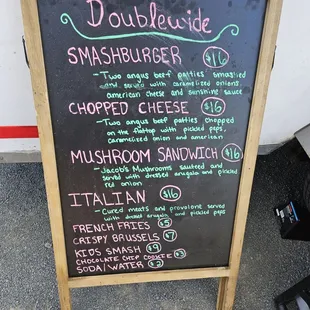 Doublewide
SMASHBURGER $16
- Two angus beef patties smashed
and served with caramelized onions,
american cheese and sunshine sauce
CHOPPED CHEESE $16
- Two angus beef patties chopped
on the flattop with pickled peps,
caramelized onion and american
MUSHROOM SANDWICH $16
- Jacob's Mushrooms sauteed and
served with dressed arugala and pickled
red onion
ITALIAN $16
- Cured meats and provolone served
with dressed arugala and pickled peps
FRENCH FRIES $5
CRISPY BRUSSELS $7
KIDS SMASH $9
CHOCOLATE CHIP COOKIE $3
SODA/WATER $2